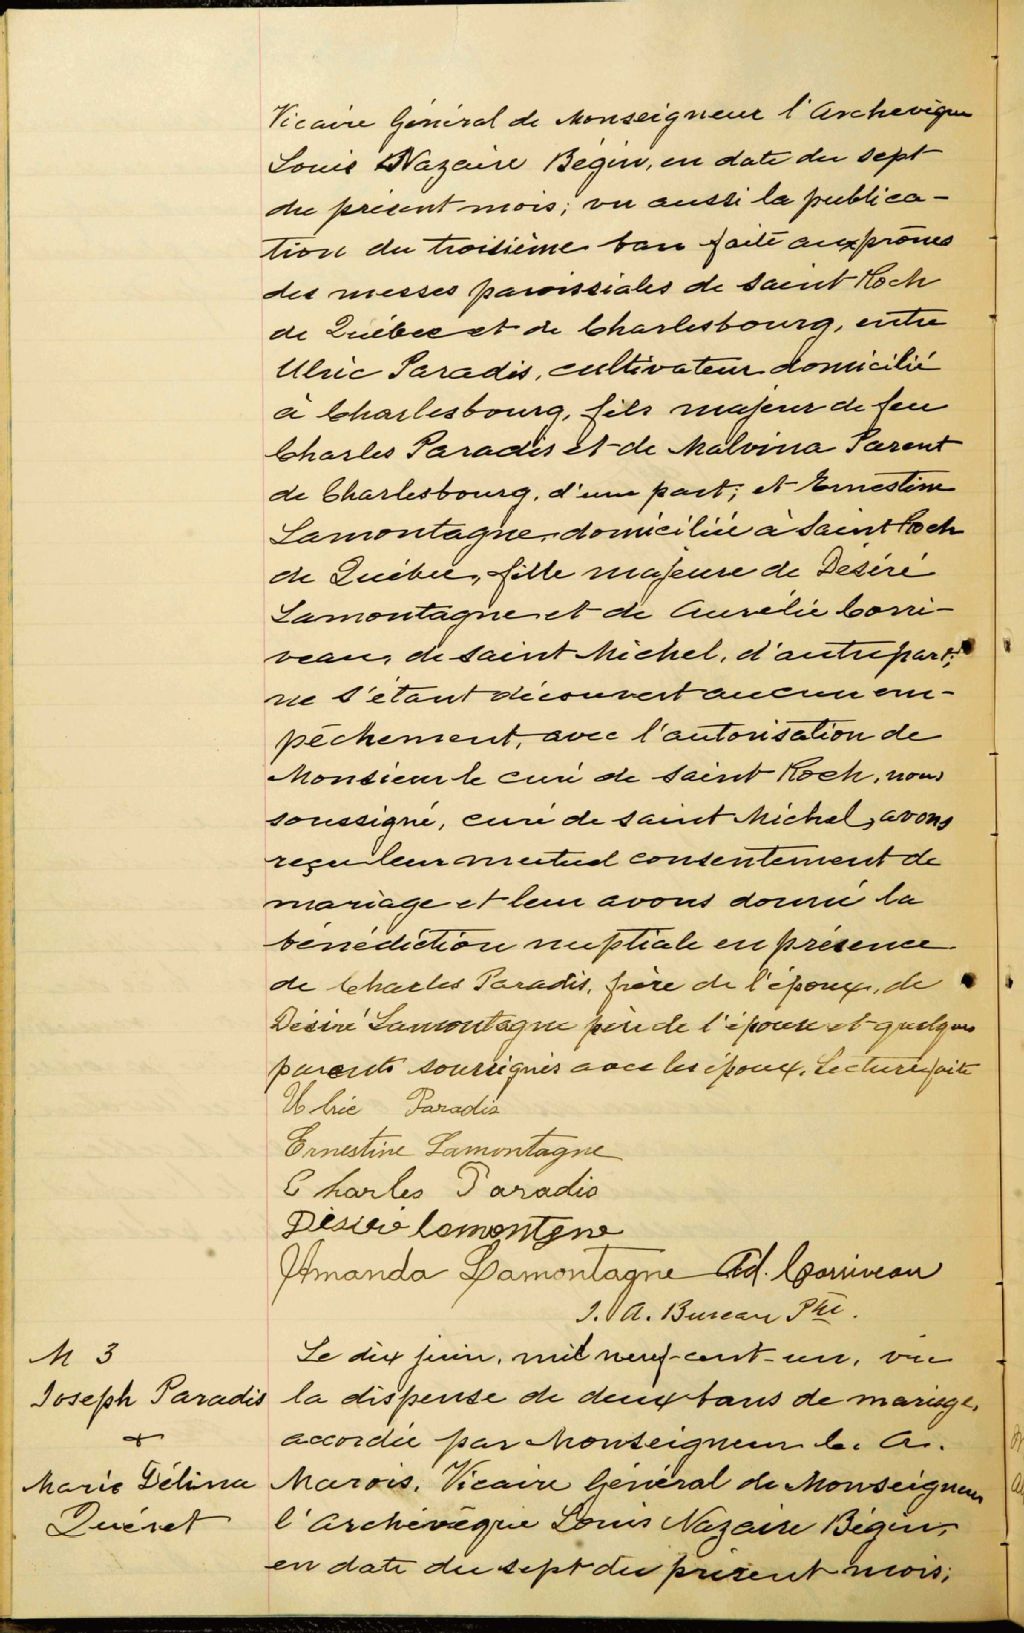 Vicaire Général de Monseigneur l'Archevêque
Louis Nazaire Bégin, en date du sept
du présent mois; vu aussi la publica-
tion du troisième ban faite aux prônes
des messes paroissiales de Saint Roch
de Québec et de Charlesbourg, entre
Ulric Paradis, cultivateur domicilié
à Charlesbourg, fils majeur de feu
Charles Paradis et de Malvina Parent
de Charlesbourg, d'une part; et Ernestine
Lamontagne, domiciliée à Saint Roch
de Québec, fille majeure de Désiré
Lamontagne et de Aurélie Corri-
veau, de Saint Michel, d'autre part;
ne s'étant découvert aucun em-
pêchement, avec l'autorisation de
Monsieur le curé de Saint Roch, nous
soussigné, curé de Saint Michel, avons
reçu leur mutuel consentement de
mariage et leur avons donné la
bénédiction nuptiale en présence
de Charles Paradis, frère de l'époux, de
Désiré Lamontagne père de l'épouse et quelques
parents soussignés avec les époux. Lecture faite
Ulric Paradis
Ernestine Lamontagne
Charles Paradis
Désiré lamontgne
Amanda Lamontagne Ad. Corriveau
J. A. Bureau Ptre.
M 3
Joseph Paradis
+
Marie Délina
Quéret
Le dix juin, mil neuf-cent-un, vu
la dispense de deux bans de mariage,
accordée par Monseigneur C. A.
Marois, Vicaire Général de Monseigneur
l'Archevêque Louis Nazaire Bégin,
en date du sept du présent mois;